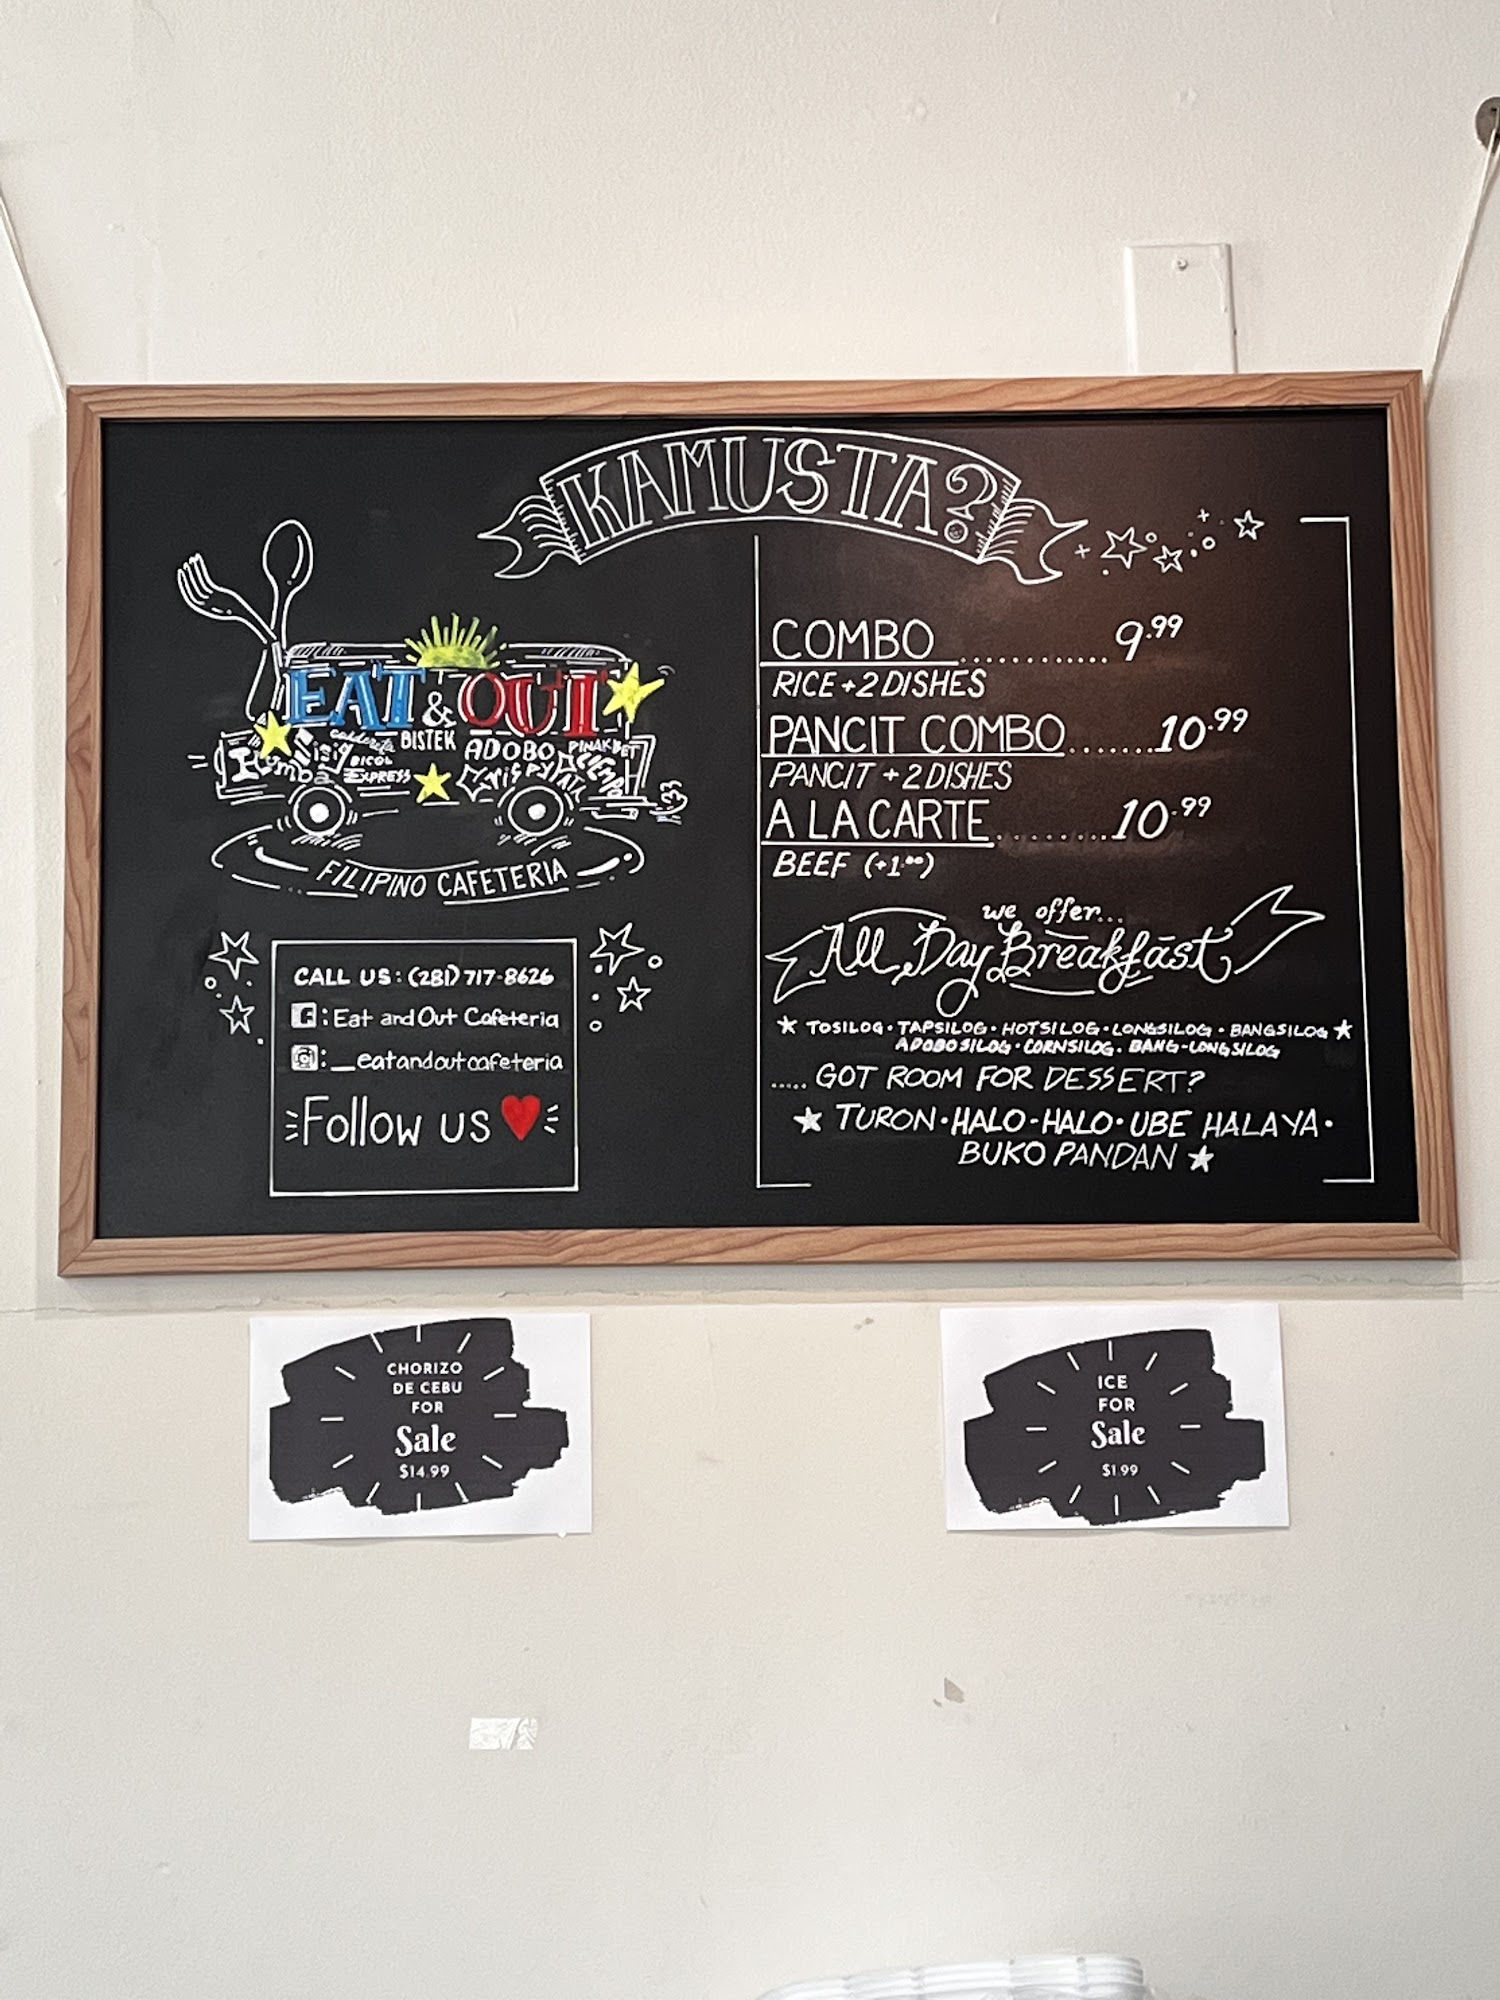 KAMUSTA?
EAT & OUT
Humba
Sisig
Caldereta
BISTEK
ADOBO
PINAKBET
BICOL
EXPRESS
Crispy PATA
LIEMPO
FILIPINO CAFETERIA
CALL US: (281) 717-8626
f: Eat and Out Cafeteria
: _eatandoutcafeteria
Follow us
COMBO ............ 9.99
RICE + 2 DISHES
PANCIT COMBO ....... 10.99
PANCIT + 2 DISHES
A LA CARTE ........ 10.99
BEEF (+1.00)
we offer...
All Day Breakfast
★ TOSILOG · TAPSILOG · HOTSILOG · LONGSILOG · BANGSILOG ★
ADOBOSILOG · CORNSILOG · BANG-LONGSILOG
..... GOT ROOM FOR DESSERT?
★ TURON · HALO-HALO · UBE HALAYA ·
BUKO PANDAN ★
CHORIZO
DE CEBU
FOR
Sale
$14.99
ICE
FOR
Sale
$1.99